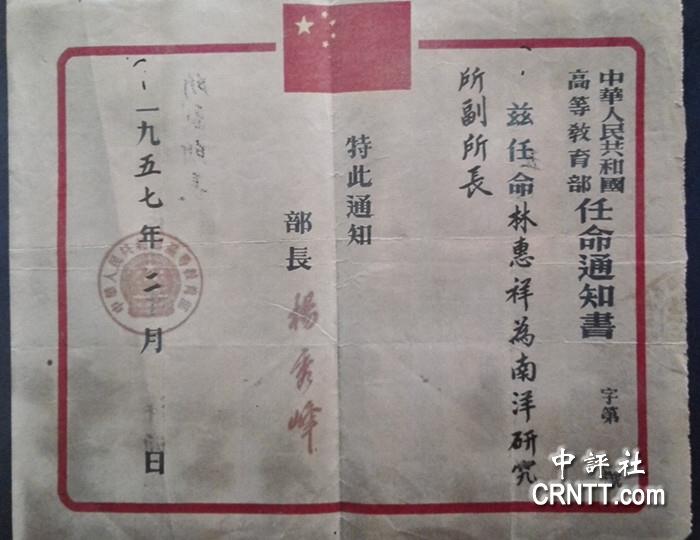 中華人民共和國
高等教育部
任命通知書
字第
號
茲任命林惠祥為南洋研究
所副所長
特此通知
部長 楊秀峰
一九五七年二月
日
中評社
CRNTT.com